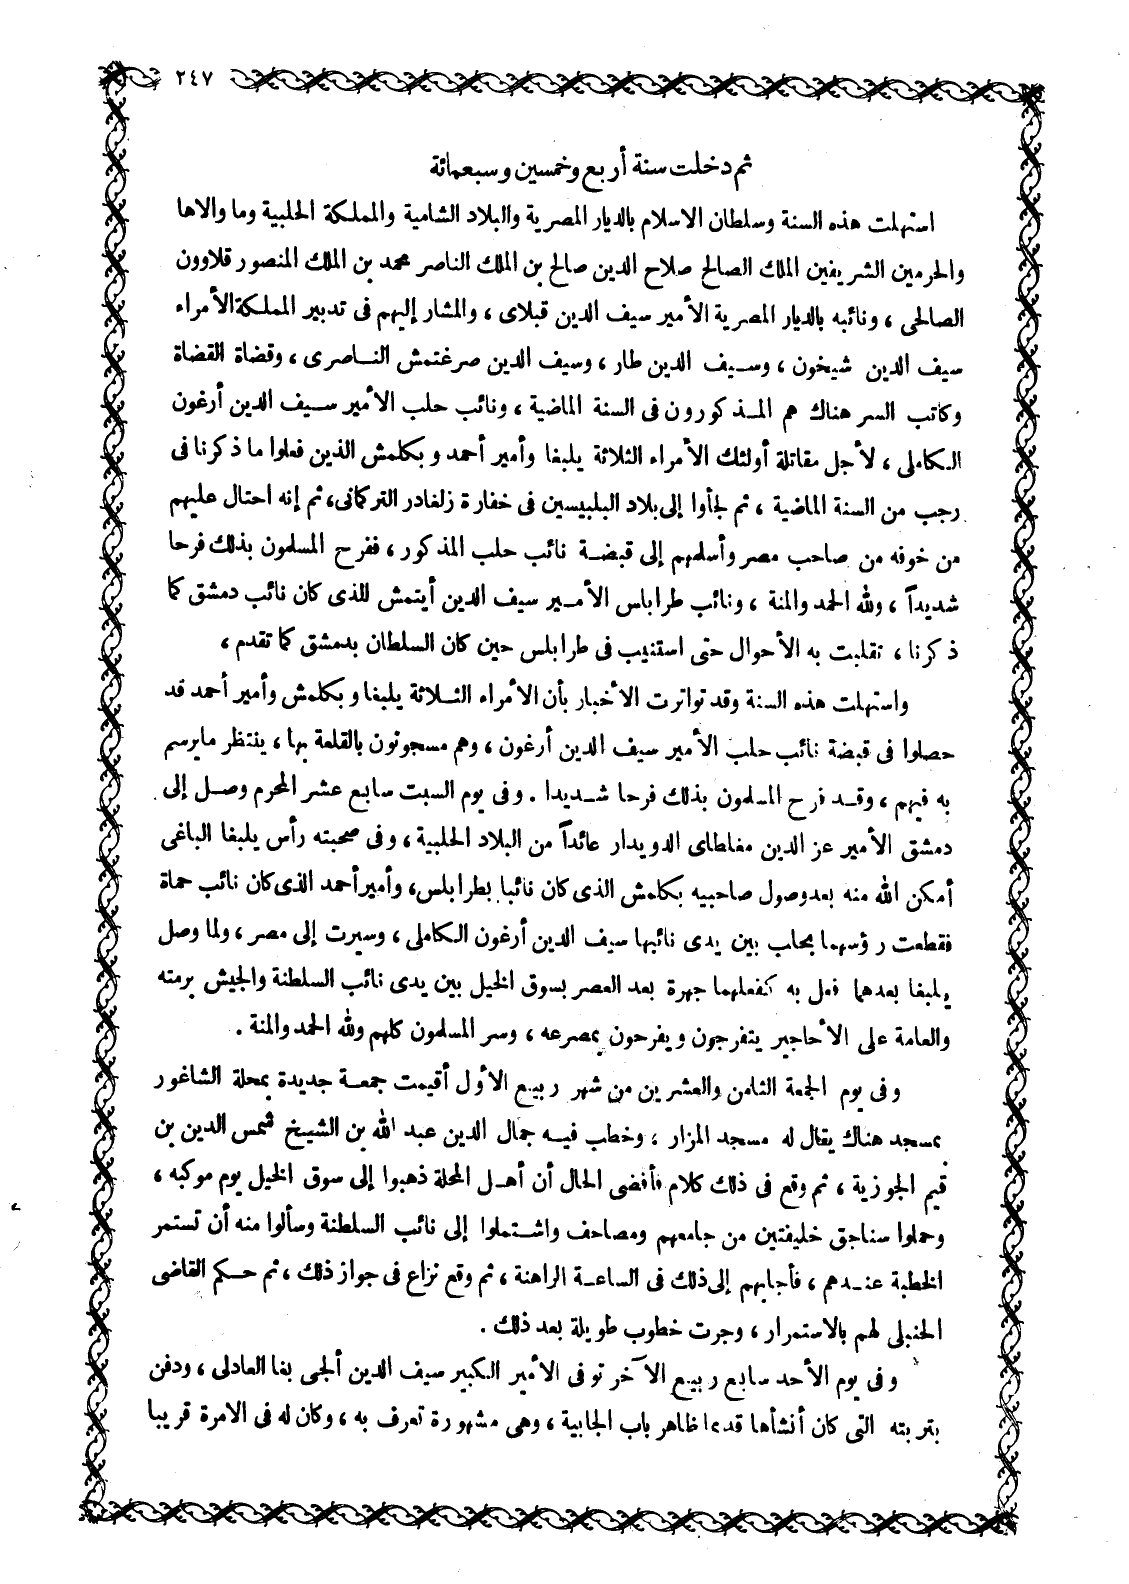 ٢٤٧
ثم دخلت سنة أربع وخمسين وسبعمائة
استهلت هذه السنة وسلطان الاسلام بالديار المصرية والبلاد الشامية والمملكة الحلبية وما والاها
والحرمين الشريفين الملك الصالح صلاح الدين صالح بن الملك الناصر محمد بن الملك المنصور قلاوون
الصالحى ، ونائبه بالديار المصرية الأمير سيف الدين قبلاى ، والمشار إليهم فى تدبير المملكة الأمراء
سيف الدين شيخون ، وسيف الدين طار ، وسيف الدين صرغتمش الناصرى ، وقضاة القضاة
وكاتب السر هناك هم المذكورون فى السنة الماضية ، ونائب حلب الأمير سيف الدين أرغون
الكاملى ، لأجل مقاتلة أولئك الأمراء الثلاثة يلبغا وأمير أحمد وبكلمش الذين فعلوا ما ذكرنا فى
رجب من السنة الماضية ، ثم لجأوا إلى بلاد البلبيسين فى خفارة زلغادر التركمانى ، ثم إنه احتال عليهم
من خوفه من صاحب مصر وأسلمهم إلى قبضة نائب حلب المذكور ، ففرح المسلمون بذلك فرحا
شديداً ، ولله الحمد والمنة ، ونائب طرابلس الأمير سيف الدين أيتمش للذى كان نائب دمشق كما
ذكرنا ، تقلبت به الأحوال حتى استنيب فى طرابلس حين كان السلطان بدمشق كما تقدم ،
واستهلت هذه السنة وقد تواترت الأخبار بأن الأمراء الثلاثة يلبغا وبكلمش وأمير أحمد قد
حصلوا فى قبضة نائب حلب الأمير سيف الدين أرغون ، وهم مسجونون بالقلعة بها ، ينتظر ما يرسم
به فيهم ، وقد فرح المسلمون بذلك فرحا شديدا . وفى يوم السبت سابع عشر المحرم وصل إلى
دمشق الأمير عز الدين مغلطاى الدويدار عائداً من البلاد الحلبية ، وفى صحبته رأس يلبغا الباغى
أمكن الله منه بعد وصول صاحبيه بكلمش الذى كان نائبا بطرابلس، وأمير أحمد الذى كان نائب حماة
فقطعت رؤسهما بحلب بين يدى نائبها سيف الدين أرغون الكاملى ، وسيرت إلى مصر ، ولما وصل
يلبغا بعدهما فعل به كفعلهما جهرة بعد العصر بسوق الخيل بين يدى نائب السلطنة والجيش برمته
والعامة على الأحاجير يتفرجون ويفرحون بمصرعه ، وسر المسلمون كلهم ولله الحمد والمنة .
وفى يوم الجمعة الثامن والعشرين من شهر ربيع الأول أقيمت جمعة جديدة بمحلة الشاغور
بمسجد هناك يقال له مسجد المزار ، وخطب فيه جمال الدين عبد الله بن الشيخ شمس الدين بن
قيم الجوزية ، ثم وقع فى ذلك كلام فأفضى الحال أن أهل المحلة ذهبوا إلى سوق الخيل يوم موكبه ،
وحملوا سناجق خليفتين من جامعهم ومصاحف واشتملوا إلى نائب السلطنة وسألوا منه أن تستمر
الخطبة عندهم ، فأجابهم إلى ذلك فى الساعة الراهنة ، ثم وقع نزاع فى جواز ذلك ، ثم حكم القاضى
الحنبلى لهم بالاستمرار ، وجرت خطوب طويلة بعد ذلك .
وفى يوم الأحد سابع ربيع الآخر توفى الأمير الكبير سيف الدين ألجى بغا العادلى ، ودفن
بتربته التى كان أنشأها قديما ظاهر باب الجابية ، وهى مشهورة تعرف به ، وكان له فى الامرة قريبا